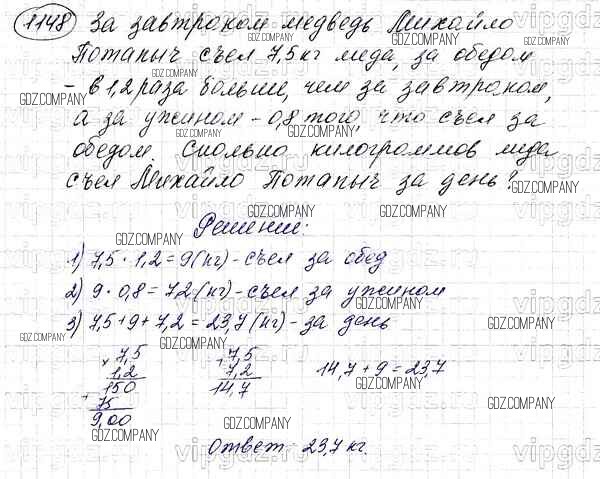 1148 За завтраком медведь Михайло
Потапыч съел 7,5 кг меда, за обедом
- в 1,2 раза больше, чем за завтраком,
а за ужином - 0,8 того, что съел за
обедом. Сколько килограммов меда
съел Михайло Потапыч за день?
Решение:
1) 7,5 · 1,2 = 9 (кг) - съел за обед
2) 9 · 0,8 = 7,2 (кг) - съел за ужином
3) 7,5 + 9 + 7,2 = 23,7 (кг) - за день
× 7,5
1,2
+ 150
75
9,00
+ 7,5
7,2
14,7
14,7 + 9 = 23,7
Ответ: 23,7 кг.
GDZ.COMPANY
vipgdz.ru